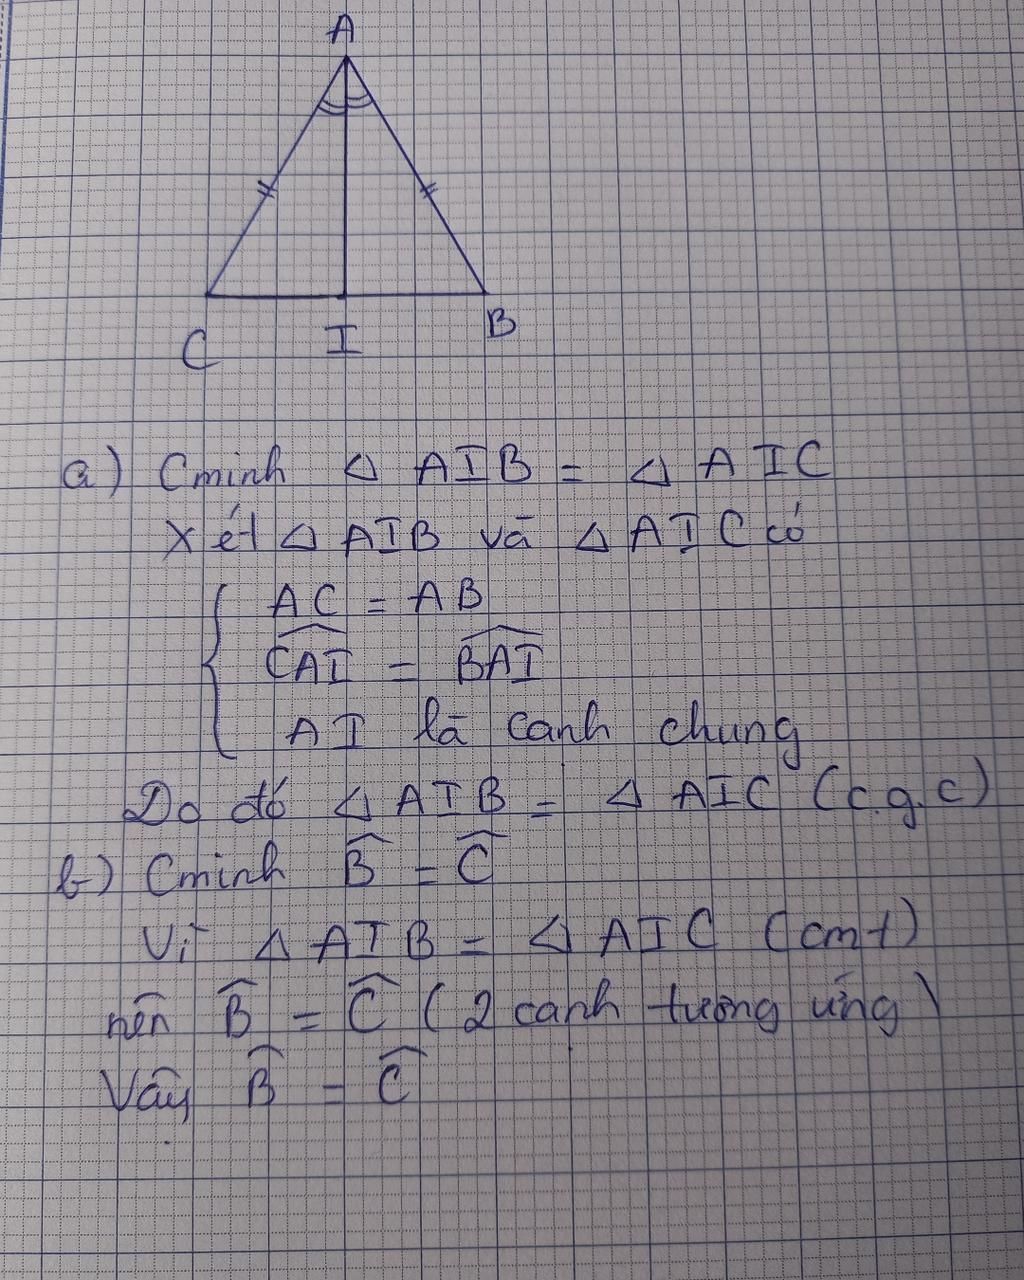 A
C I B
a) Cminh △ AIB = △ AIC
Xét △ AIB và △ AIC có
AC = AB
\widehat{CAI} = \widehat{BAI}
AI là cạnh chung
Do đó △ AIB = △ AIC (c.g.c)
b) Cminh \widehat{B} = \widehat{C}
Vì △ AIB = △ AIC (cmt)
nên \widehat{B} = \widehat{C} (2 cạnh tương ứng)
Vậy \widehat{B} = \widehat{C}